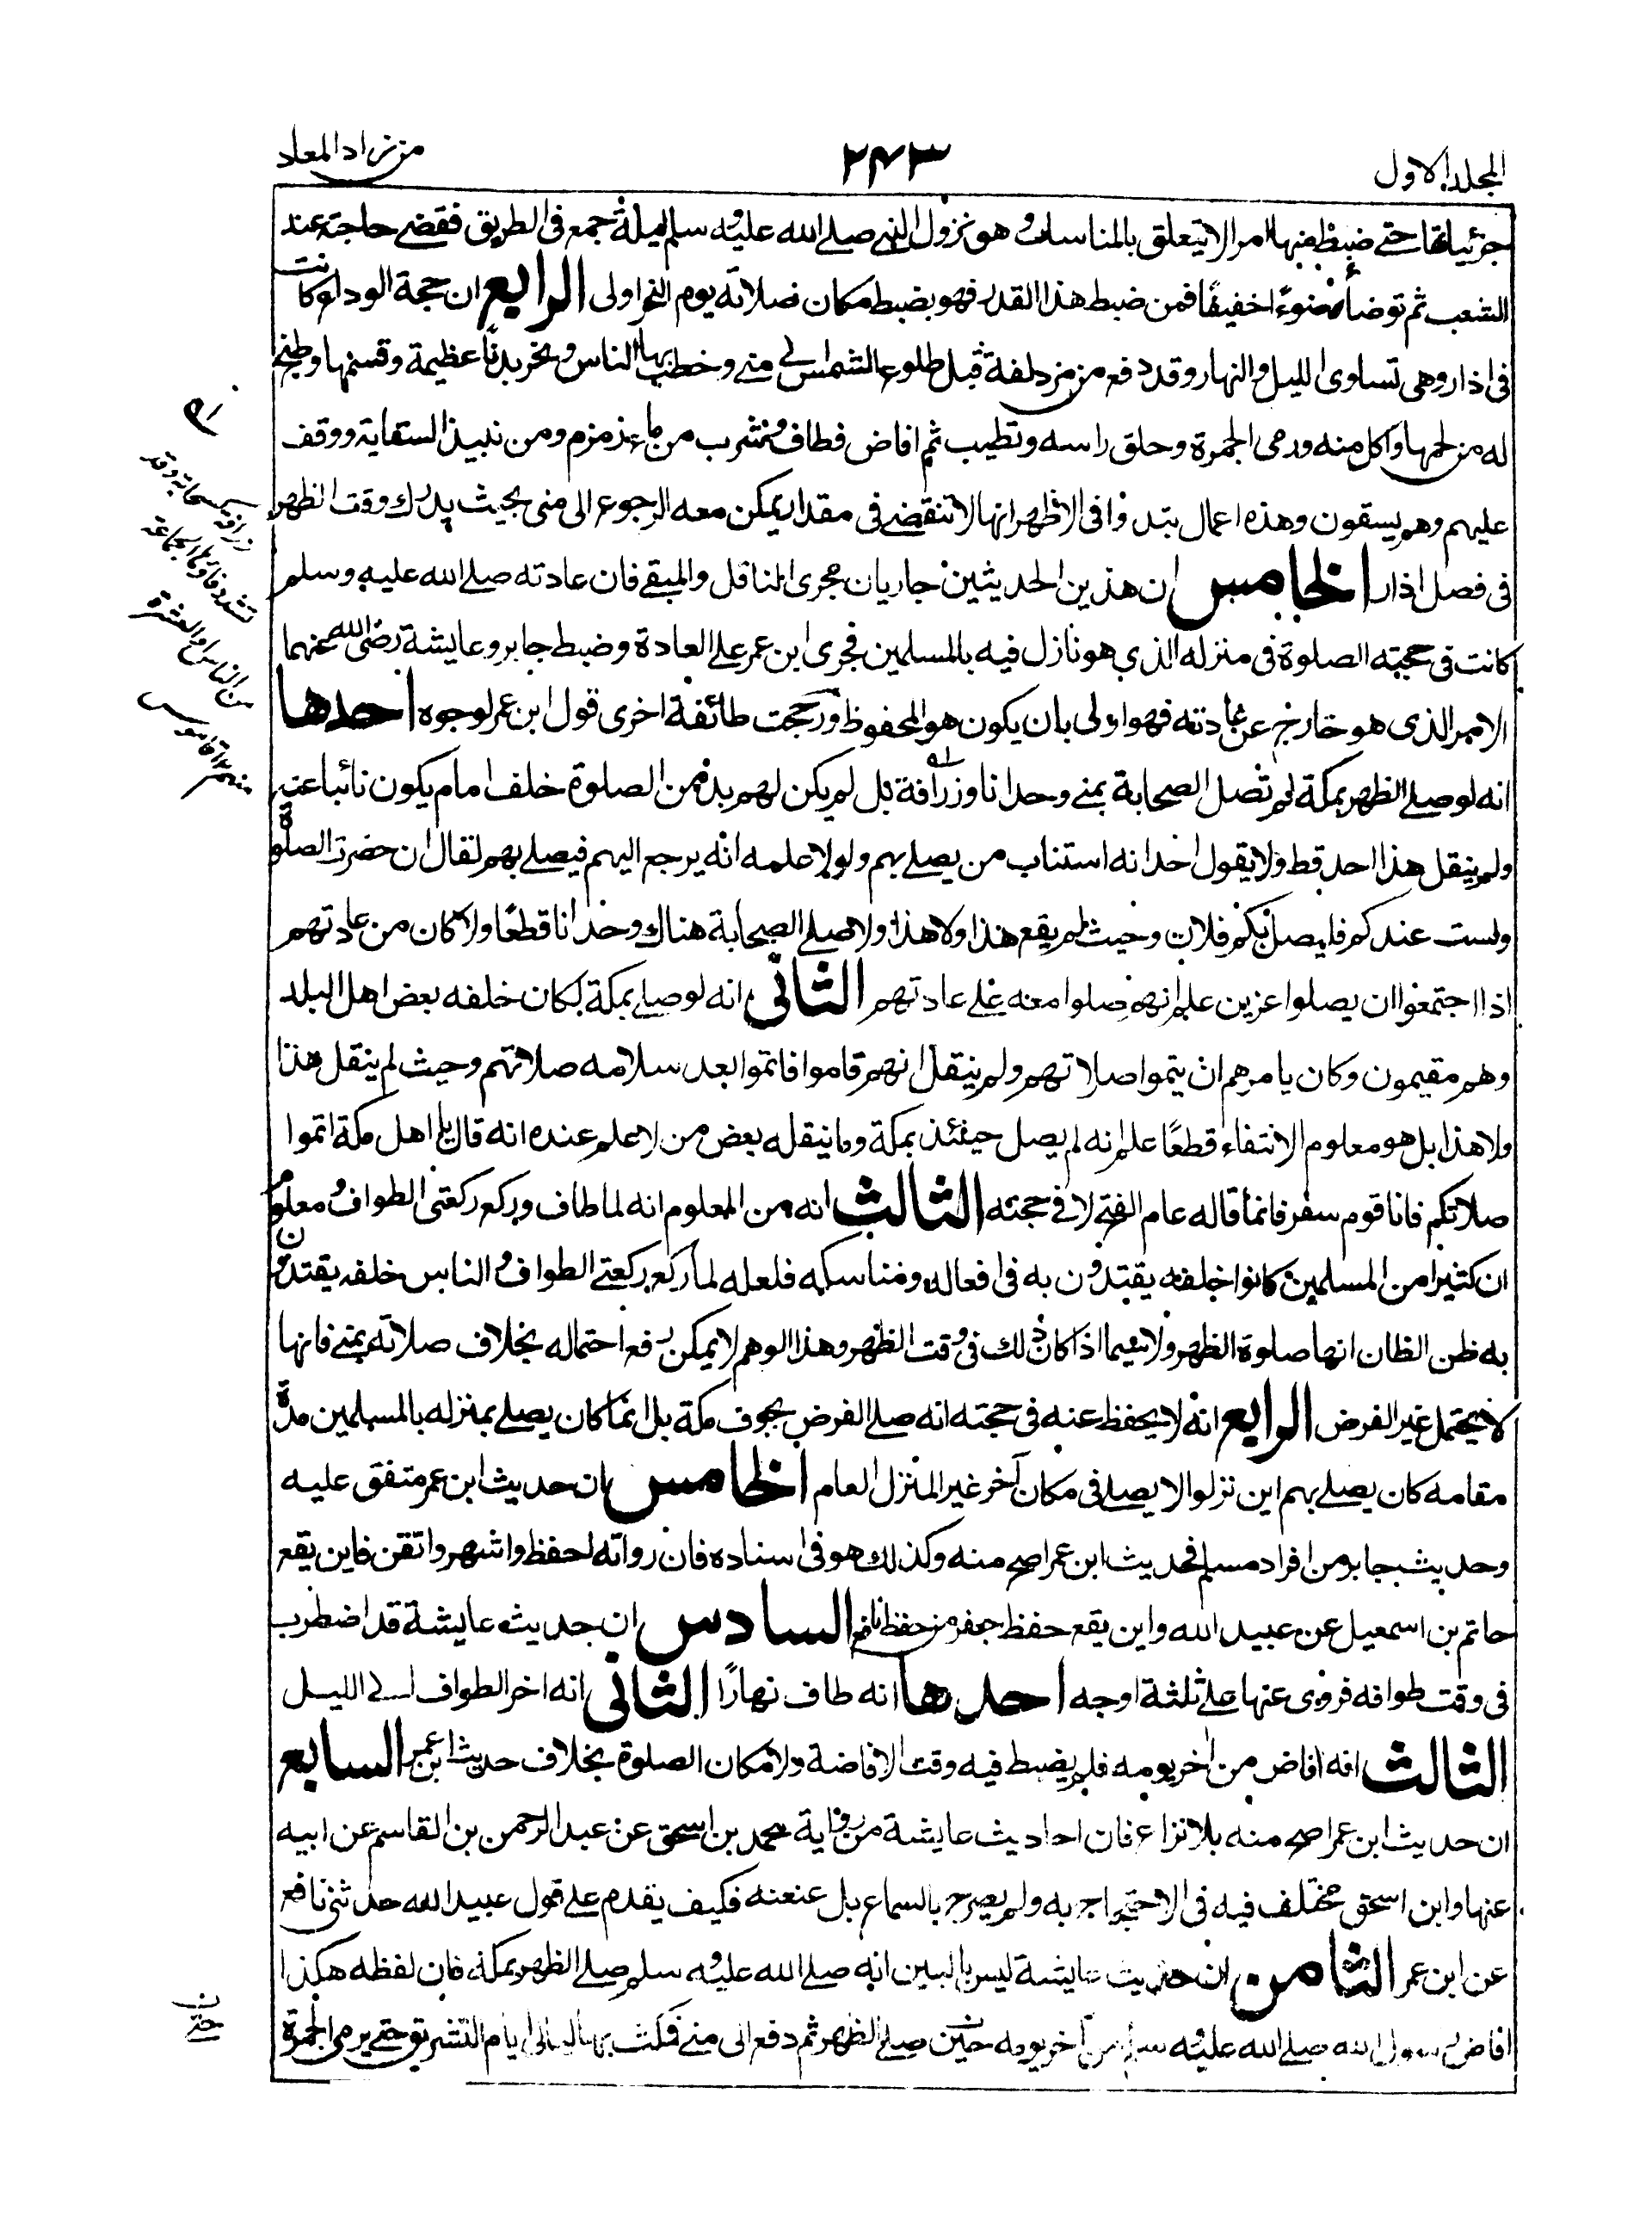 المجلد الاول
٢٤٣
من زاد المعاد
جزئياتها حتے ضبط منها امر الا يتعلق بالمناسك و هو نزول النبے صلے الله عليه و سلم ليلة جمع فى الطريق فقضے حاجته عند
الشعب ثم توضأ وضوءً اخفيفًا فمن ضبط هذا القدر فهو بضبط مكان صلاته يوم النحر اولى الرابع ان حجة الوداع كانت
فى اذار وهى تساوى الليل والنهار وقد دفع من مزدلفة قبل طلوع الشمس الے منے وخطب بها الناس ونحر بدنًا عظيمة وقسمها وطبخ
له من لحمها واكل منه ورمى الجمرة وحلق راسه وتطيب ثم افاض فطاف وشرب من ماء زمزم ومن نبيذ السقاية ووقف
عليهم وهم يسقون وهذه اعمال تبدو فى الاظهر انها لا تنقضے فى مقدار يمكن معه الرجوع الى منى بحيث يدرك وقت الظهر
فى فصل اذار الخامس ان هذين الحديثين جاريان مجرى الناقل والمبقے فان عادته صلے الله عليه وسلم
كانت فى حجته الصلوة فى منزله الذي هو نازل فيه بالمسلمين فجرى ابن عمر علے العادة وضبط جابر وعايشة رضى الله عنهما
الامر الذى هو خارج عن عادته فهو اولى بان يكون هو المحفوظ ورجحت طائفة اخرى قول ابن عمر لوجوه احدها
انه لو صلے الظهر بمكة لم تصل الصحابة بمنے وحدانا وزرافة بل لم يكن لهم بد من الصلوة خلف امام يكون نائبا عنه
ولم ينقل هذا احد قط ولا يقول احد انه استناب من يصلے بهم ولولا علمه انه يرجع اليهم فيصلے بهم لقال ان حضرت الصلوة
ولست عندكم فليصل بكم فلان وحيث لم يقع هذا ولا هذا ولا صلے الصحابة هناك وحدانا قطعًا ولا كان من عادتهم
اذا اجتمعوا ان يصلوا عزين علم انهم صلوا معه علے عادتهم الثانى انه لو صلے بمكة لكان خلفه بعض اهل البلد
وهم مقيمون وكان يامرهم ان يتموا صلاتهم ولم ينقل انهم قاموا فاتموا بعد سلامه صلاتهم وحيث لم ينقل هذا
ولا هذا بل هو معلوم الانتفاء قطعًا علم انه لم يصل حينئذ بمكة وما ينقله بعض من لا علم عنده انه قال يا اهل مكة اتموا
صلاتكم فانا قوم سفر فانما قاله عام الفتح لا فے حجته الثالث انه من المعلوم انه لما طاف وركع ركعتى الطواف ومعلوم
ان كثيرا من المسلمين كانوا خلفه يقتدون به فى افعاله ومناسكه فلعله لما ركع ركعتے الطواف و الناس خلفه يقتدون
به ظن الظان انها صلوة الظهر ولا سيما اذا كان ذلك فى وقت الظهر وهذا الوهم لا يمكن رفع احتماله بخلاف صلاته بمنے فانها
لا يحتمل غير الفرض الرابع انه لا يحفظ عنه فى حجته انه صلے الفرض بجوف مكة بل انما كان يصلے بمنزله بالمسلمين مدة
مقامه كان يصلے بهم اين نزلوا لا يصلے فى مكان آخر غير المنزل العام الخامس ان حديث ابن عمر متفق عليه
وحديث جابر من افراد مسلم فحديث ابن عمر اصح منه وكذلك هو فى اسناده فان رواته احفظ واشهر واتقن فاين يقع
حاتم بن اسمعيل عن عبيد الله واين يقع حفظ جعفر من حفظ نافع السادس ان حديث عايشة قد اضطرب
فى وقت طوافه فروى عنها علے ثلثة اوجه احدها انه طاف نهارًا الثانى انه اخر الطواف الے الليل
الثالث انه افاض من اخر يومه فلم يضبط فيه وقت الافاضة ولا مكان الصلوة بخلاف حديث ابن عمر السابع
ان حديث ابن عمر اصح منه بلا نزاع فان احاديث عايشة من رواية محمد بن اسحق عن عبد الرحمن بن القاسم عن ابيه
عنها وابن اسحق مختلف فيه فى الاحتجاج به ولم يصرح بالسماع بل عنعنه فكيف يقدم على قول عبيد الله حدثنى نافع
عن ابن عمر الثامن ان حديث عايشة ليس بالبين انه صلے الله عليه و سلم صلے الظهر بمكة فان لفظه هكذا
افاض رسول الله صلے الله عليه و سلم من آخر يومه حين صلے الظهر ثم دفع الى منے فمكث بها ليالى ايام التشريق حتے يرمى الجمرة
زرافة كسحابة وقد
تشدد فاؤها الجماعة
من الناس او العشرة
منهم ١٢ قاموس